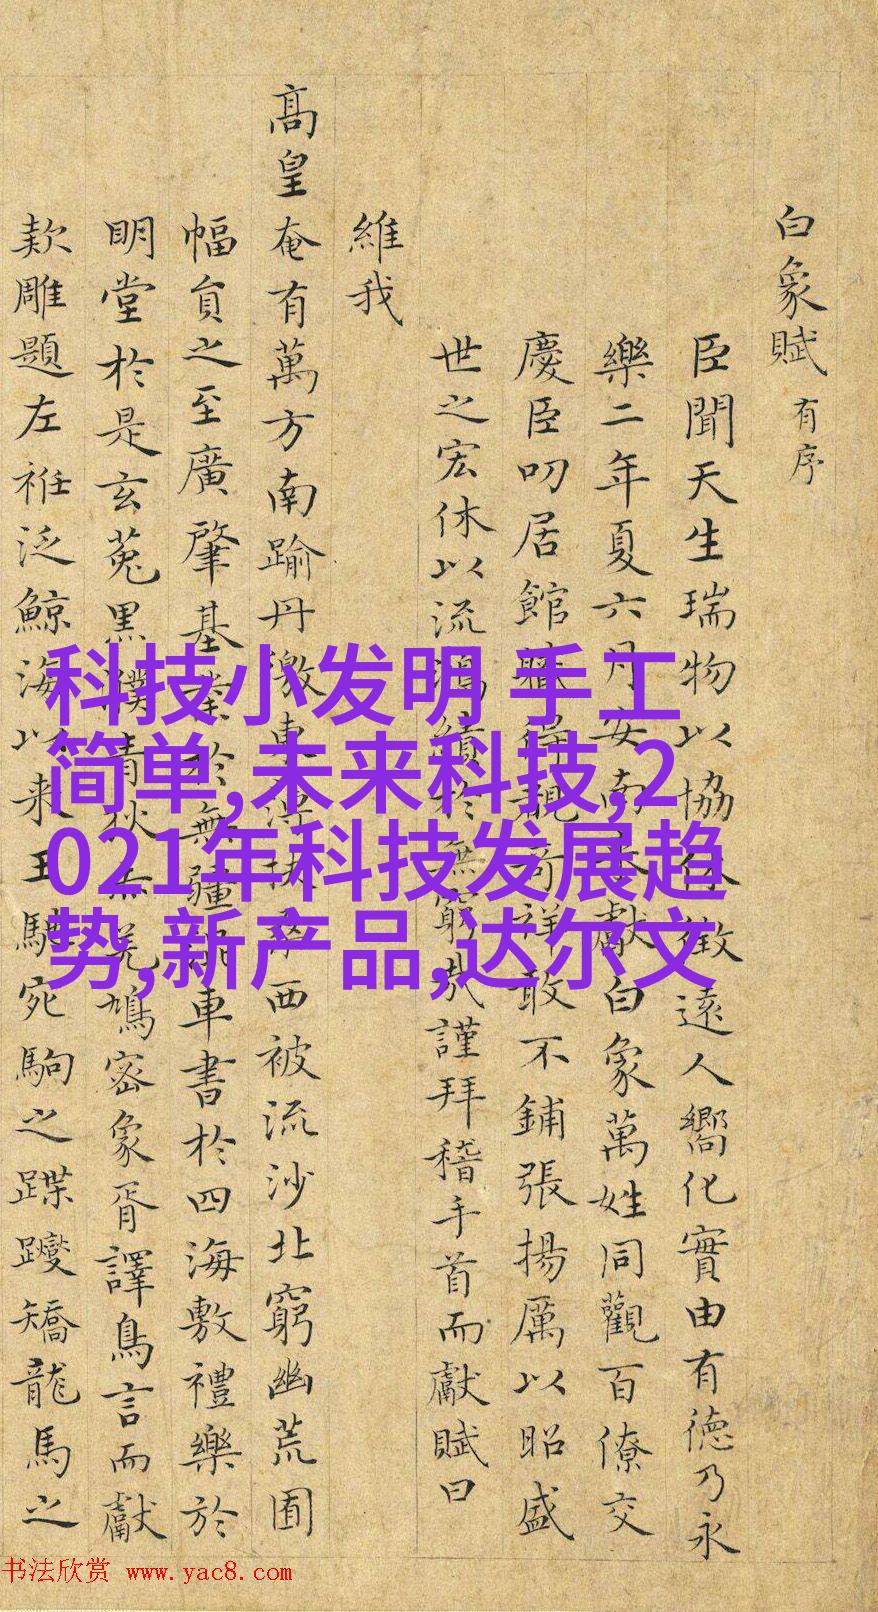 白象賦有序
臣聞天生瑞物以協休徵遠人嚮化實由有德乃永
樂二年夏六月安南來獻白象萬姓同觀百僚交
慶臣叨居館職得覩奇祥敢不鋪張揚厲以昭盛
世之宏休以流鴻績於無窮哉謹拜稽手首而獻賦曰
維我
高皇奄有萬方南踰丹徼東西被流沙北窮幽荒囿
幅員之至廣肇基業於無疆車書於四海敷禮樂於
明堂於是玄菟黑濮青鳩密象胥譯鳥言而獻
款雕題左袵泛鯨海以来王騁宛駒之蹀躞矯龍馬之
科技小发明 手工
简单,未来科技,2
021年科技发展趋
势,新产品,达尔文
书法欣赏 www.yac8.com